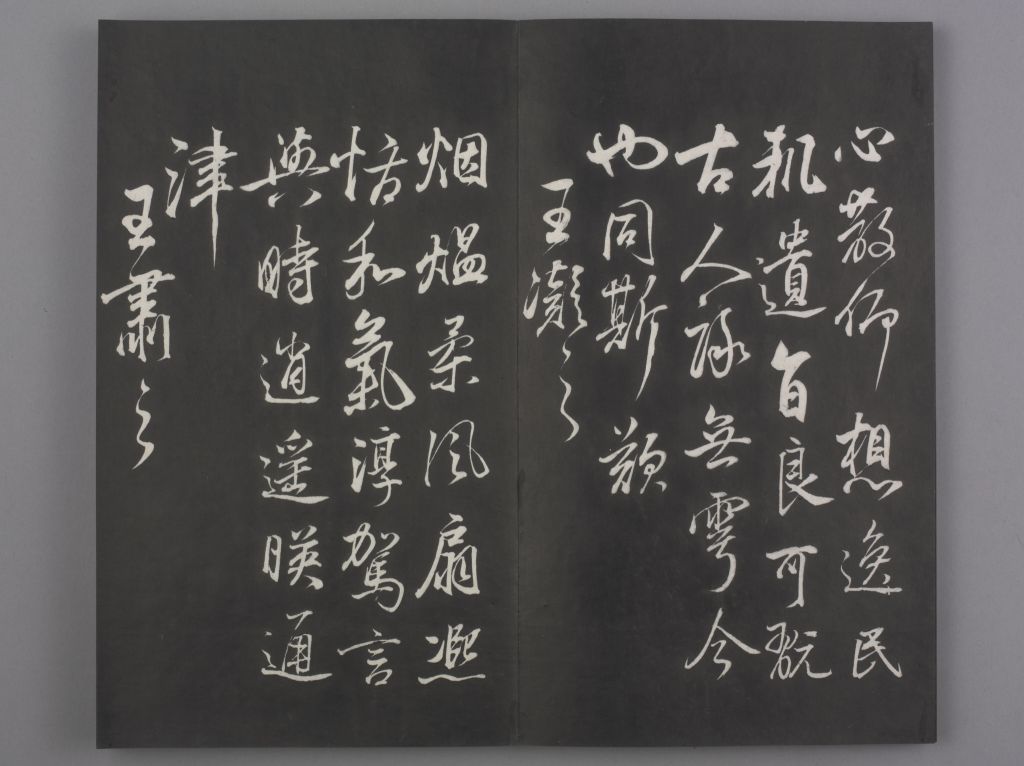 心散仰想逸民
軌遺音良可翫
古人詠無雩今
也同斯歎
王凝之
烟熅柔風扇熙
怡和氣淳駕言
興時逍遥映通
津
王肅之